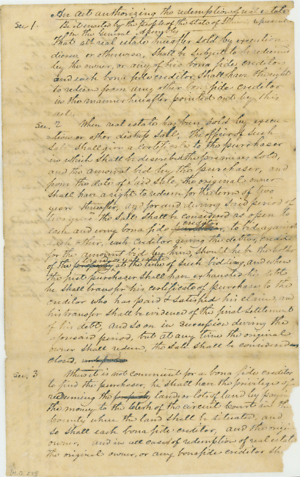 An Act authorizing the redemption of real estate
Sec 1. Be it enacted by the people of the state of Illinois represented
in the General Assembly
That all real estate hereafter sold by execution
decree or otherwise, shall be subject to be redeemed
by the owner, or any of his bona fide creditors
and each bona fide creditor shall have the right
to redeem from any other bona fide creditor
in the manner hereafter pointed out by this
act.
Sec. 2 When real estate has been sold by execution
or other sale. The officer of such
Sale shall give a certificate to the purchaser
in which shall be described the premises sold,
and the amount bid by the purchaser, and
from the date of said sale, the original owner
shall have a right to redeem for the term of two
years thereafter, and for and during said period of
the sale shall be considered as open to
each and every bona fide to bid against
each other, each creditor giving the other credit
for the amount bid by him, should he be the holder
of the at the time of the bidding, and when
the first purchaser shall have exhausted his title
he shall transfer his certificate of purchase to the
creditor who has paid & satisfied his claim, and
his transfer shall be evidence of the final settlement
of his debt, and so on in succession during the
aforesaid period, but at any time the original
owner shall redeem, the sale shall be considered
closed,
Sec. 3 Where is not convenient for a bona fide creditor
to find the purchaser, he shall have the privilege of
redeeming the land, or lots of land by paying
the money to the clerk of the circuit court in the
County where the land shall be situated, and
so shall each bona fide creditor, and the original
owner. and in all cases of redemption of real estate
the original owner, or any bona fide creditor sh